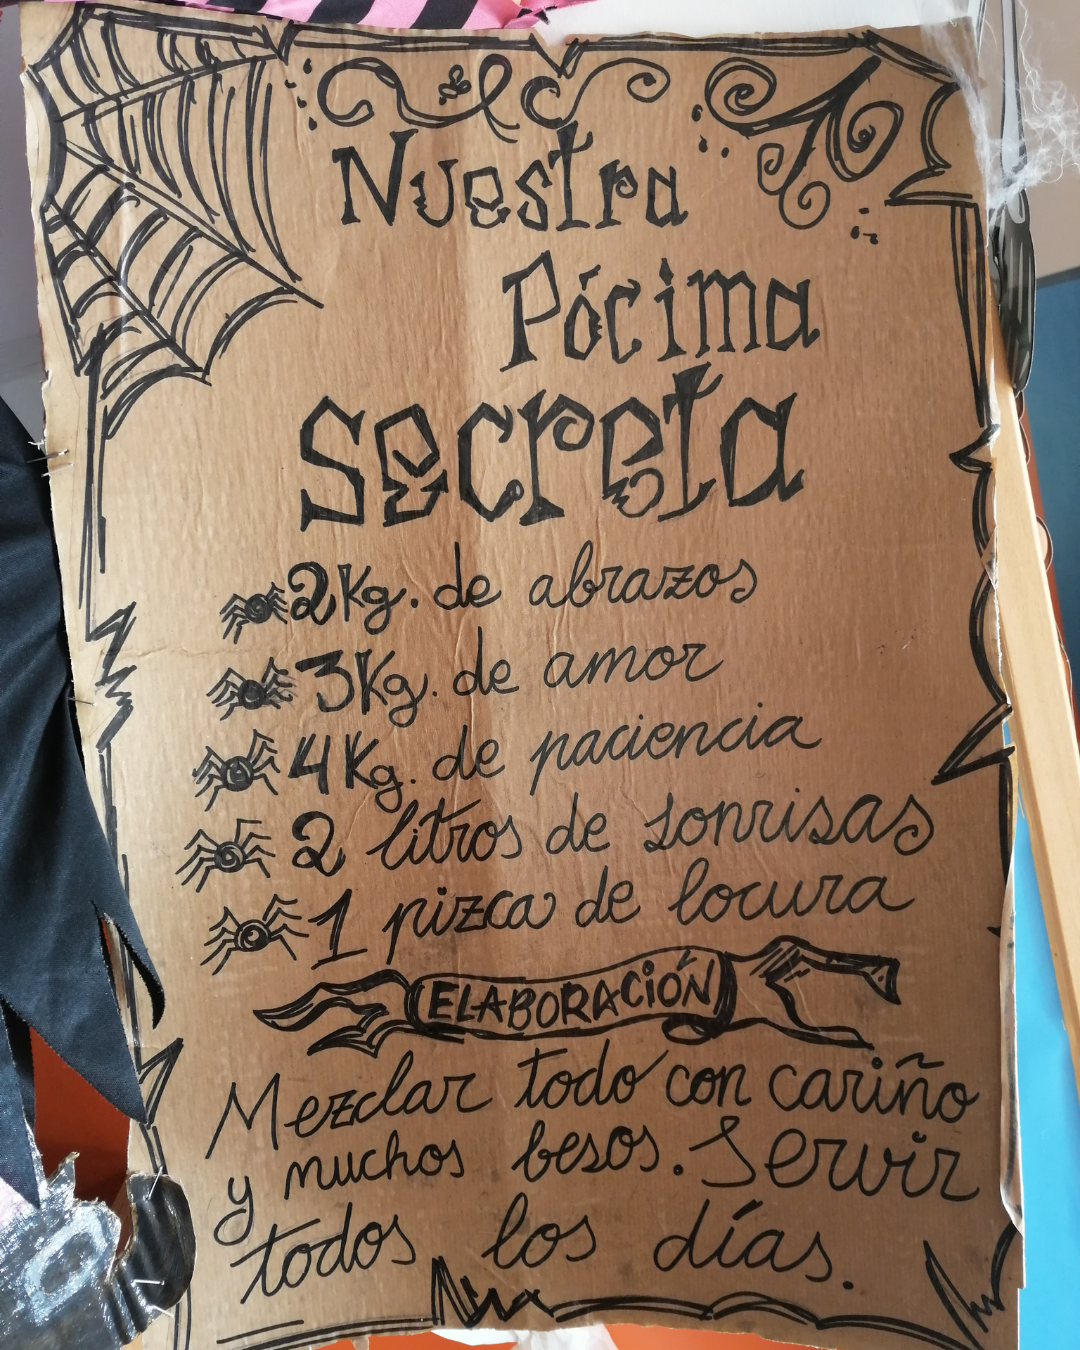 Nuestra
Pócima
secreta
2Kg. de abrazos
3Kg. de amor
4Kg. de paciencia
2 litros de sonrisas
1 pizca de locura
ELABORACIÓN
Mezclar todo con cariño
y muchos besos. Servir
todos los días.